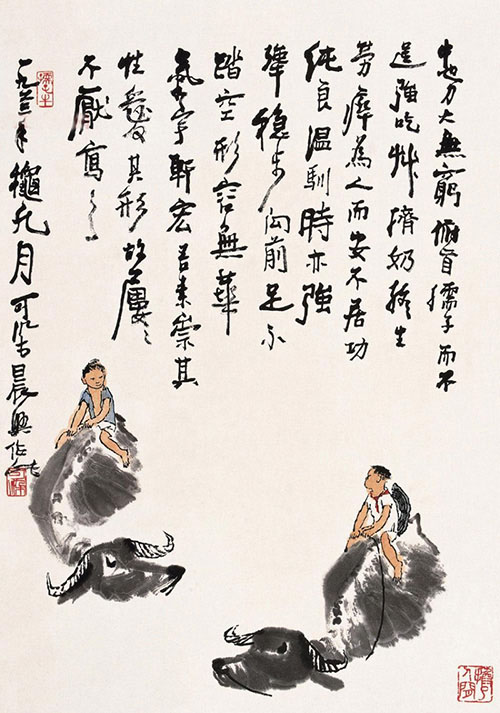 牛也力大無窮俯首孺子而不
逞強吃草擠奶終生
劳瘁為人而安不居功
純良温馴時亦強
犟穩步向前足不
踏空形容無華
氣宇軒宏吾素崇其
性愛其形故屢〻
不厭寫之
一九六二年龝九月可染晨興作